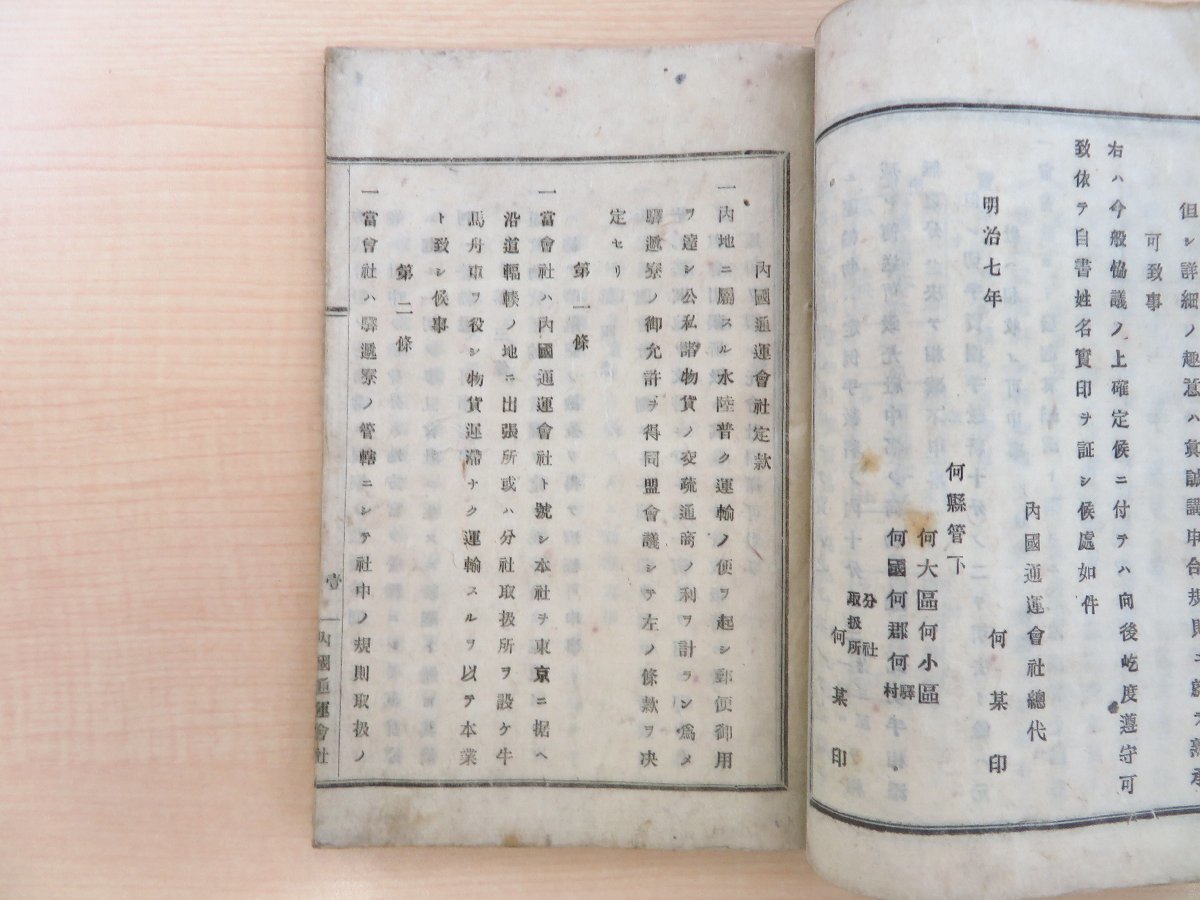 但シ詳細ノ趣意ハ眞誠講申合規則ニ就
可致事
右ハ今般協議ノ上確定候ニ付テハ向後屹度遵守可
致依テ自書姓名實印ヲ証シ候處如件
明治七年
內國通運會社總代
何某印
何縣管下
何大區何小區
何國何郡何驛村
分社
取扱所
何某印
內國通運會社定款
一內地ニ屬スル水陸普ク運輸ノ便ヲ起シ郵便御用
ヲ達シ公私諸物貨ノ交疏通商ノ利ヲ計ラン爲メ
驛遞寮ノ御允許ヲ得同盟會議シテ左ノ條款ヲ决
定セリ
第一條
一當會社ハ內國通運會社ト號シ本社ヲ東京ニ据ヘ
沿道輻輳ノ地ニ出張所或ハ分社取扱所ヲ設ケ牛
馬舟車ヲ役シ物貨遲滯ナク運輸スルヲ以テ本業
ト致シ候事
第二條
一當會社ハ驛遞寮ノ管轄ニシテ社中ノ規則取扱ノ
壹
內國通運會社